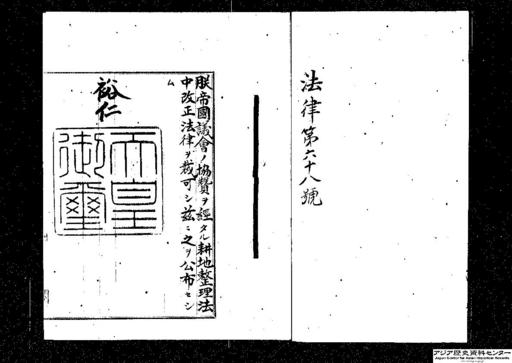 法律第六十八號
朕帝國議會ノ協贊ヲ經タル耕地整理法
中改正法律ヲ裁可シ茲ニ之ヲ公布セシ
ム
裕仁
天皇御璽
アジア歴史資料センター
Japan Center for Asian Historical Records